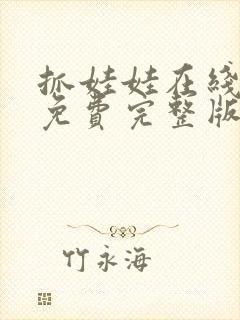 抓娃娃在线
免费完整版
竹永海